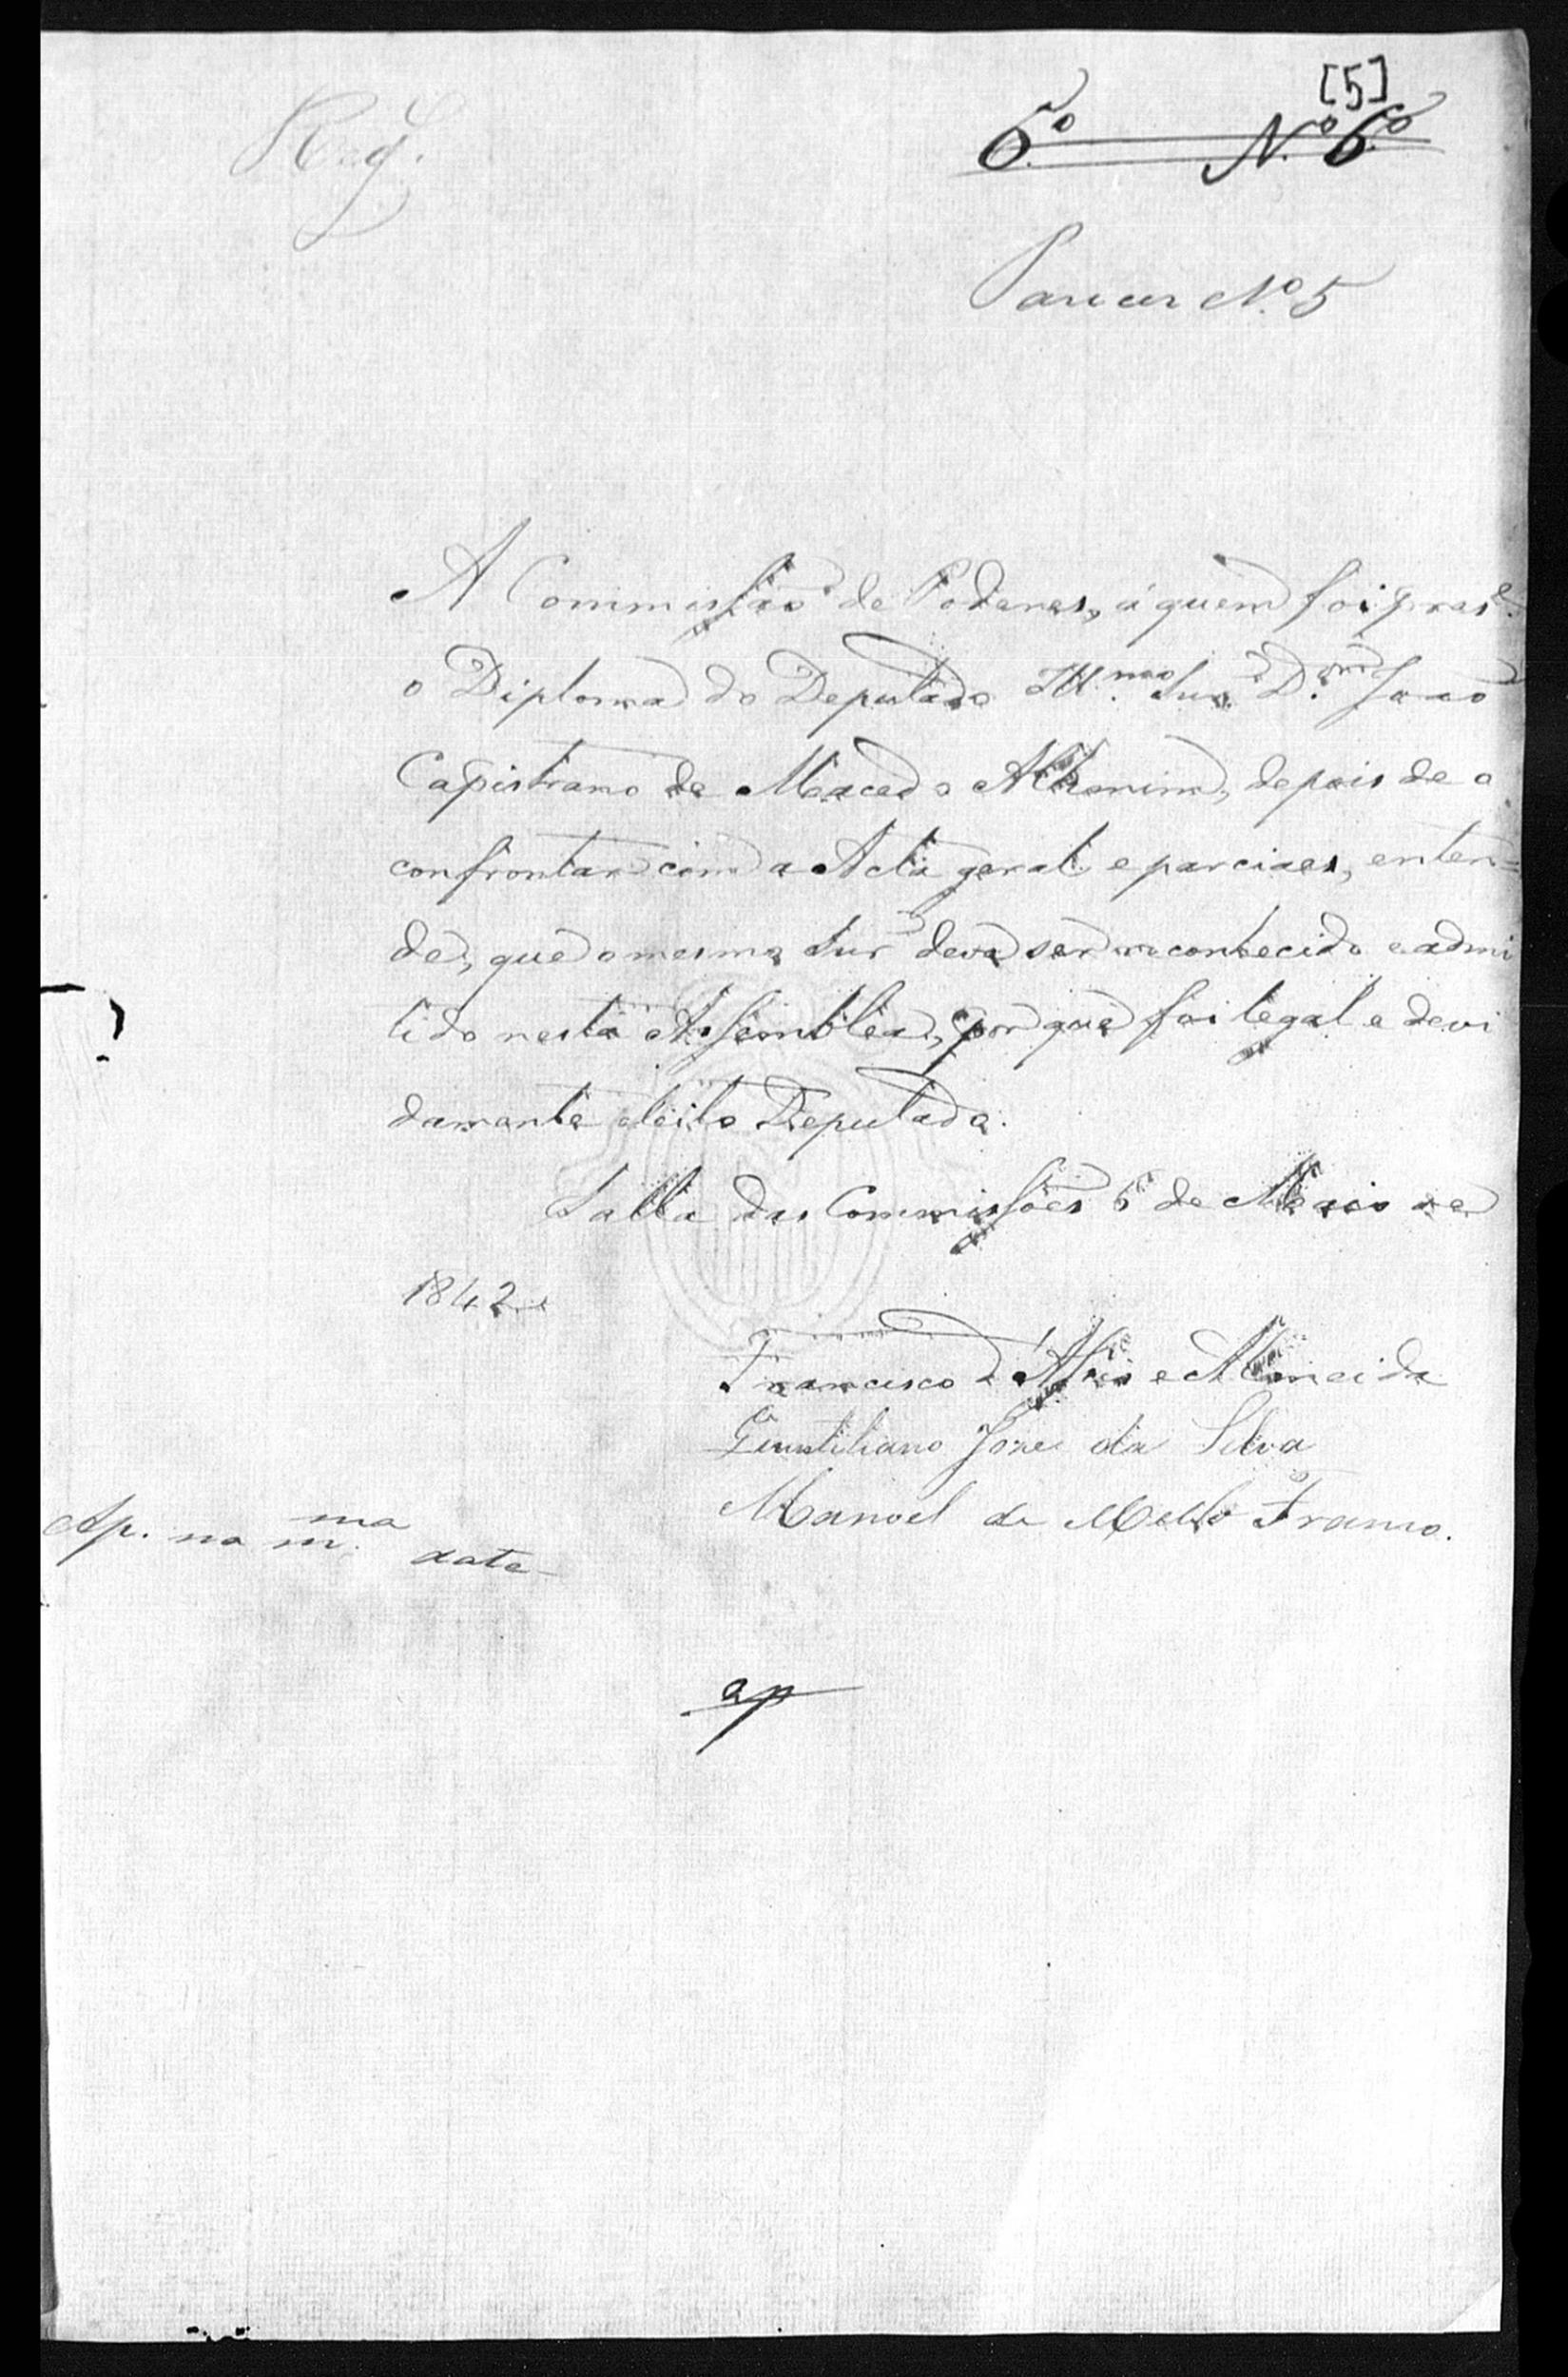 [5]
6.º N.º 6.º
Reg.
Parecer N.º 5
A Commissão de Poderes, á quem foi pres.e
o Diploma do Deputado Ill.mo Snr. D.or João
Capistrano de Macedo Alkmim, depois de o
confrontar com a Acta geral e parciaes, enten=
de, que o mesmo Snr deve ser reconhecido e admi
tido nesta Assemblea, por que foi legal e devi
damente eleito Deputado.
Salla das Commissões 6 de Maio de
1842
Francisco d'Assis e Almeida
Quintiliano Jose da Silva
Manoel de Mello Franco.
Ap. na m.ma data
ap